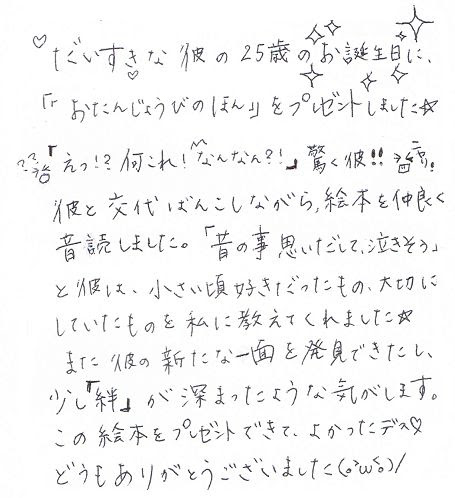 ♡だいすきな彼の25歳のお誕生日に、
「「おたんじょうびのほん」」をプレゼントしました☆
「えっ!?何これ!なんなん?!」驚く彼!!
彼と交代ばんこしながら、絵本を仲良く
音読しました。「昔の事思いだして、泣きそう」
と彼は、小さい頃好きだったもの、大切に
していたものを私に教えてくれました☆
また彼の新たな一面を発見できたし、
少し『絆』が深まったような気がします。
この絵本をプレゼントできて、よかったデス♡
どうもありがとうございました(。°ω°。)/